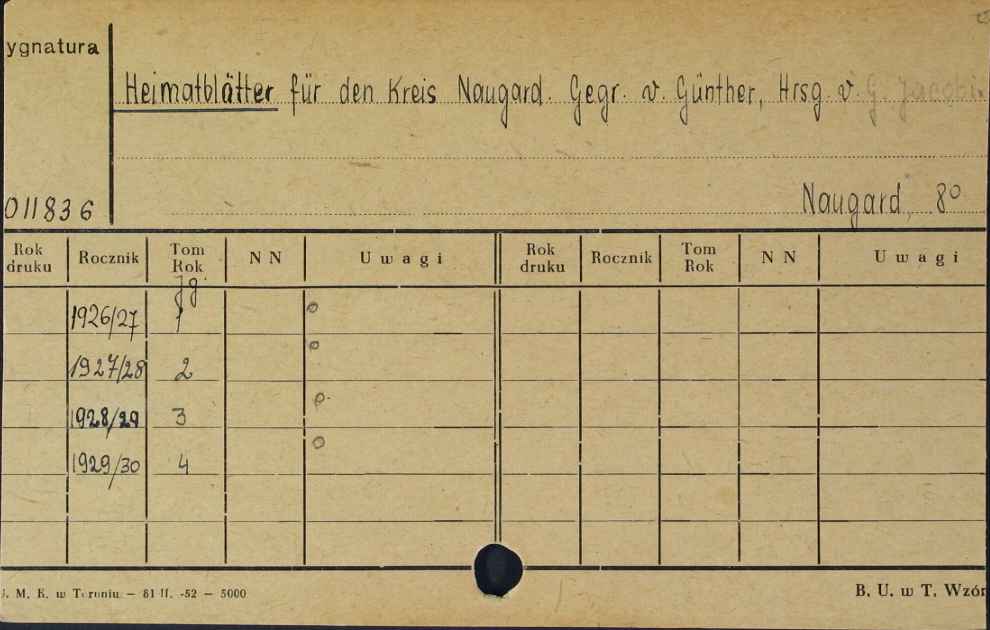 ygnatura
Heimatblätter für den Kreis Naugard. Gegr. v. Günther, Hrsg. v G. Jacobi.
011836
Naugard, 8°
Rok druku Rocznik Tom Rok N N Uwagi Rok druku Rocznik Tom Rok N N Uwagi
Jg.
1926/27 1 o
1927/28 2 o
1928/29 3 o
1929/30 4 o
U. M. K. w Toruniu — 81 II. -52 — 5000
B. U. w T. Wzór